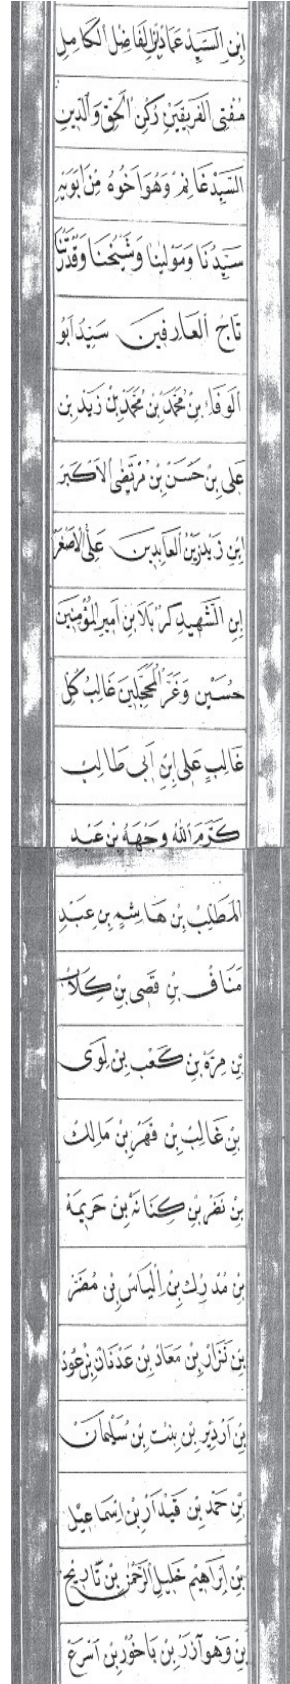 ابن السيد عماد بن الفاضل الكامل
مفتى الفريقين ركن الحق والدين
السيد غانم وهو اخوه من ابويه
سيدنا ومولينا وشيخنا وقدوتنا
تاج العارفين سيد ابو
الوفاء بن محمد بن محمد بن زيد بن
على بن حسن بن مرتضى الاكبر
ابن زيد زين العابدين على الاصغر
ابن الشهيد كربلا بن امير المؤمنين
حسين وغر المحجلين غالب كل
غالب على ابن ابى طالب
كرم الله وجهه بن عبد
المطلب بن هاشم بن عبد
مناف بن قصى بن كلاب
بن مرة بن كعب بن لوى
بن غالب بن فهر بن مالك
بن نضر بن كنانة بن حريمة
بن مدرك بن الياس بن مضر
بن نزار بن معاد بن عدنان بن عود
بن ازدير بن بنت بن سليمان
بن حمد بن قيدار بن اسماعيل
بن ابراهيم خليل الرحمن بن تاريخ
بن وهو آزر بن باخور بن اسرع